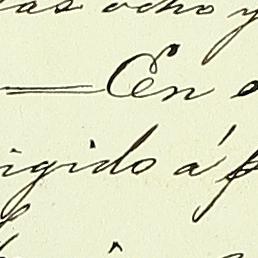 las ocho y
— En
igido á